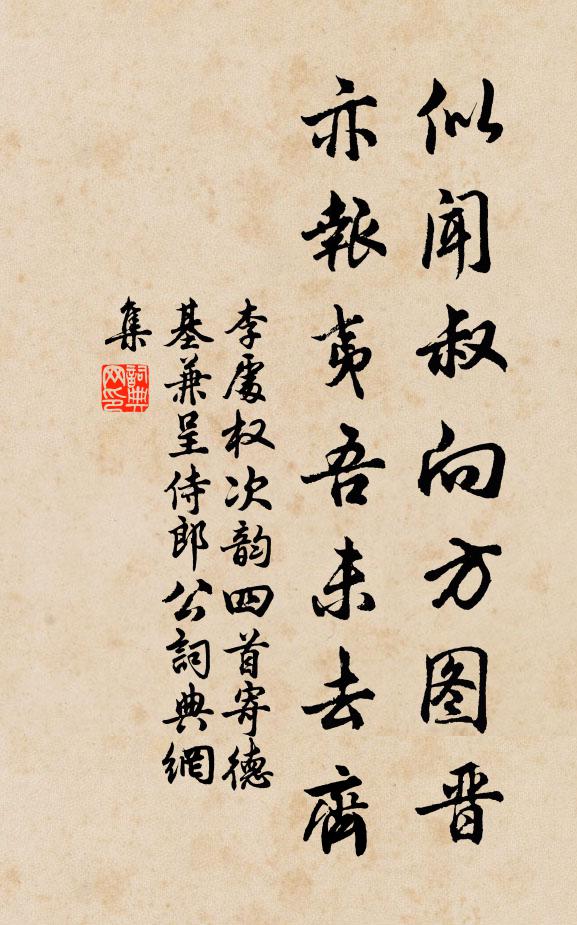 似闻叔向方图晋
亦報夷吾未去齊
李處权次韵四首寄德
基兼呈侍郎公詞典網
集
詞典
网印